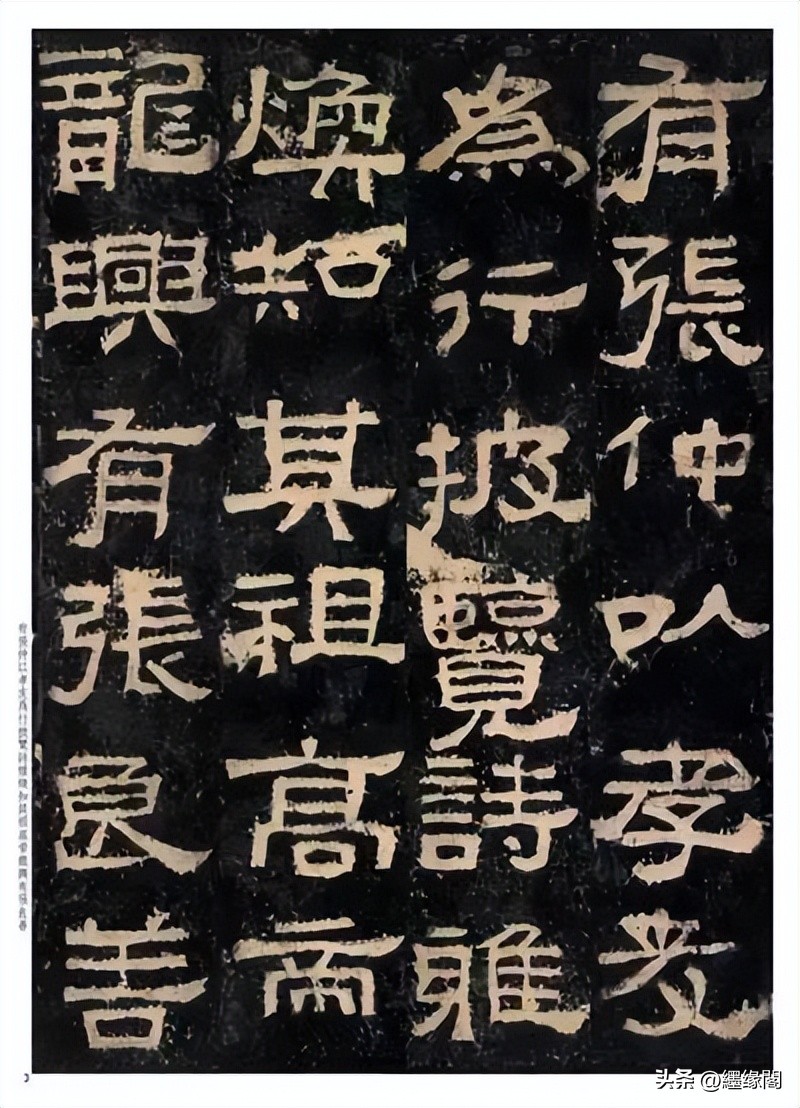 有張仲以孝友
為行披覽詩雅
煥知其祖高帝
龍興有張良善
有張仲以孝友爲行披覽詩雅煥知其祖高帝龍興有張良善
头条 @纆缘阁